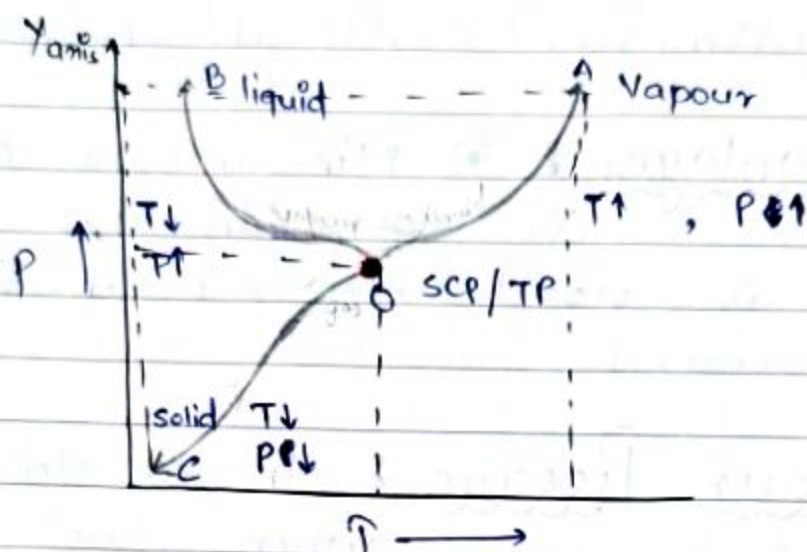 Yanis
B liquid
A Vapour
T↓
P↑
T↑ , P↑
P ↑
O SCP/TP
solid T↓
PP↓
C
T →